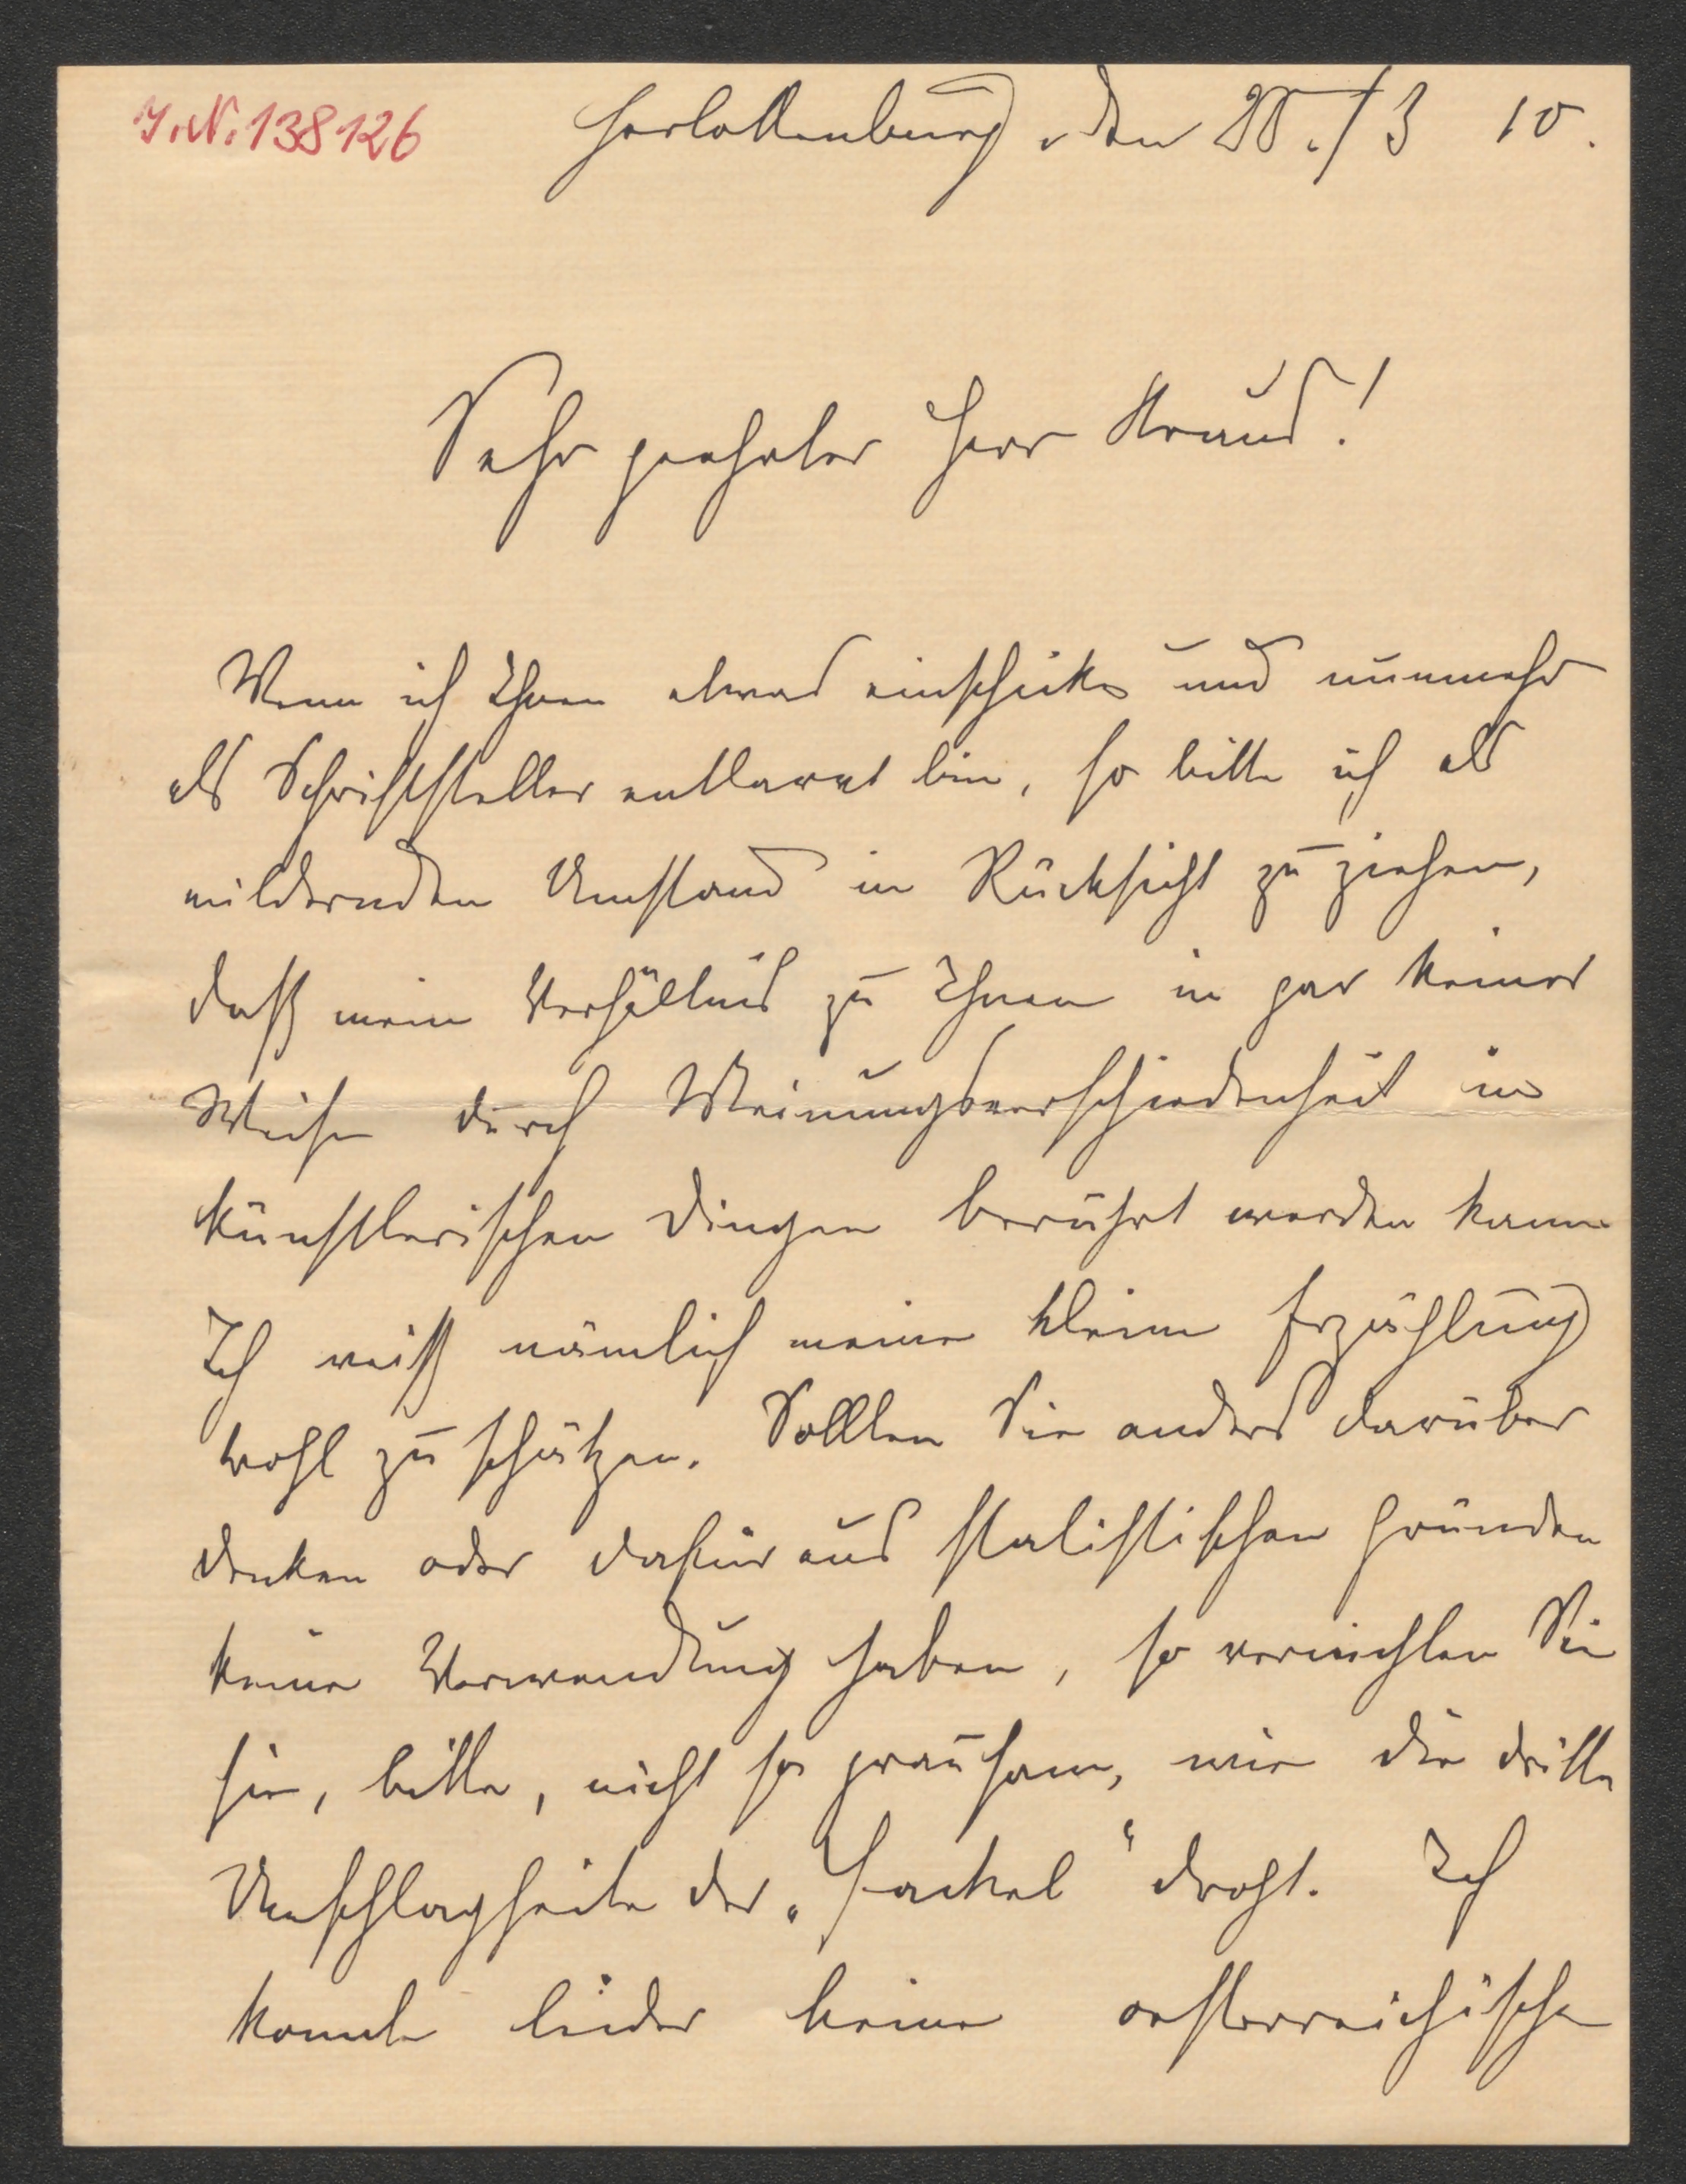 J.N. 138126
Charlottenburg, den 20./3 10.
Sehr geehrter Herr Kraus!
Wenn ich Ihnen etwas einschicke und nunmehr
als Schriftsteller entlarvt bin, so bitte ich als
mildernden Umstand in Rücksicht zu ziehen,
daß mein Verhältnis zu Ihnen in gar keiner
Weise durch Meinungsverschiedenheit in
künstlerischen Dingen berührt werden kann
Ich weiß nämlich meine kleine Erzählung
wohl zu schätzen. Sollten Sie anders darüber
denken oder dafür aus stilistischen Gründen
keine Verwendung haben, so vernichten Sie
sie, bitte, nicht so grausam, wie die dritte
Umschlagseite der „Fackel“ droht. Ich
konnte leider keine oesterreichische